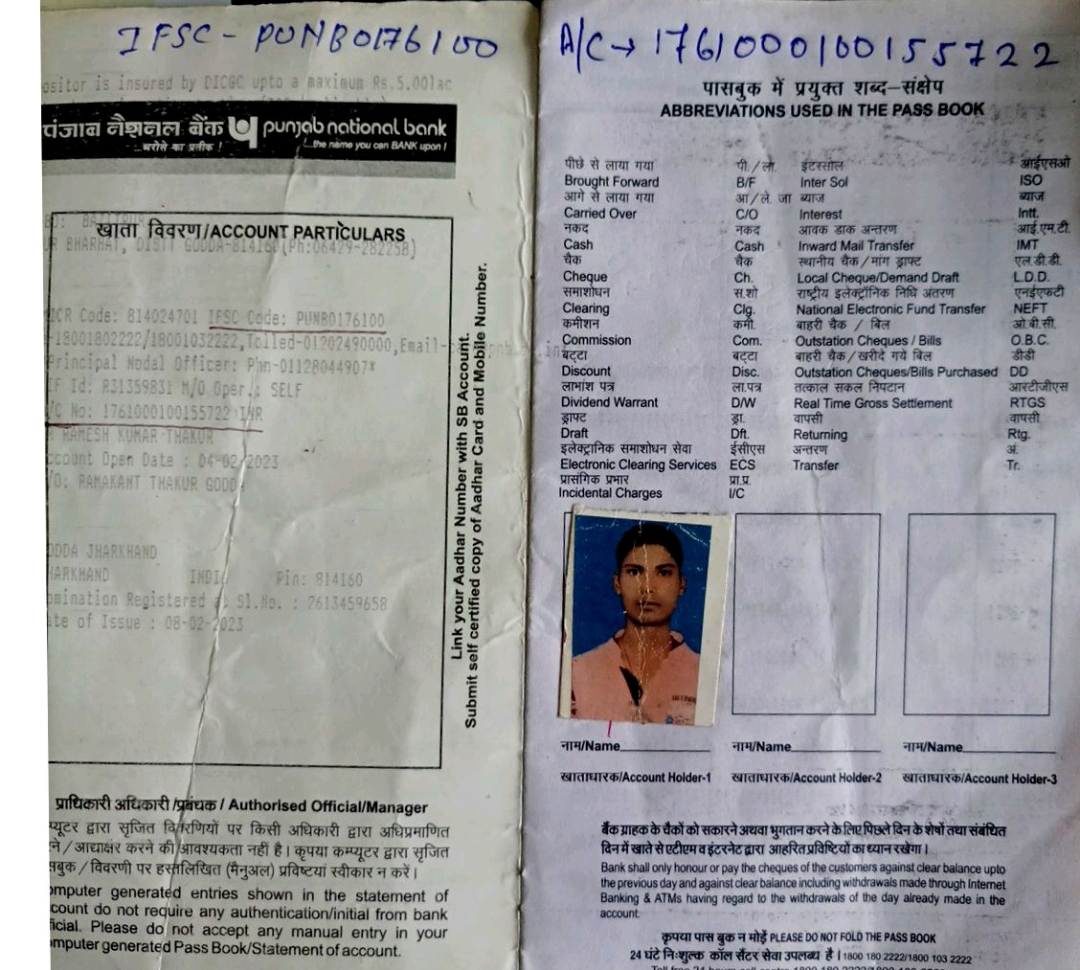 IFSC - PUNB0176100
ositor is insured by DICGC upto a maximum Rs.5.00lac
पंजाब नैशनल बैंक punjab national bank
...भरोसे का प्रतीक ! ...the name you can BANK upon !
खाता विवरण/ACCOUNT PARTICULARS
R BHARHAT, DISTT GODDA-814160(Ph:06429-282258)
ICR Code: 814024701 IFSC Code: PUNB0176100
-18001802222/18001032222,Tolled-01202490000,Email-
Principal Nodal Officer: Phn-01128044907*
IF Id: R31359831 M/O Oper.: SELF
/C No: 1761000100155722 INR
RAMESH KUMAR THAKUR
ccount Open Date : 04-02-2023
/O: RAMAKANT THAKUR GODDA
ODDA JHARKHAND
HARKHAND INDI Pin: 814160
omination Registered at Sl.No. : 2613459658
ate of Issue : 08-02-2023
Link your Aadhar Number with SB Account.
Submit self certified copy of Aadhar Card and Mobile Number.
प्राधिकारी अधिकारी /प्रबंधक / Authorised Official/Manager
प्यूटर द्वारा सृजित विवरणियों पर किसी अधिकारी द्वारा अधिप्रमाणित
ने / आद्याक्षर करने की आवश्यकता नहीं है । कृपया कम्प्यूटर द्वारा सृजित
सबुक / विवरणी पर हस्तलिखित (मैनुअल) प्रविष्टियां स्वीकार न करें ।
omputer generated entries shown in the statement of
count do not require any authentication/initial from bank
ficial. Please do not accept any manual entry in your
mputer generated Pass Book/Statement of account.
A/C → 1761000100155722
पासबुक में प्रयुक्त शब्द-संक्षेप
ABBREVIATIONS USED IN THE PASS BOOK
पीछे से लाया गया पी./ला. इंटरसोल आईएसओ
Brought Forward B/F Inter Sol ISO
आगे से लाया गया आ/ले. जा ब्याज ब्याज
Carried Over C/O Interest Intt.
नकद नकद आवक डाक अन्तरण आई.एम.टी.
Cash Cash Inward Mail Transfer IMT
चैक चैक स्थानीय चैक/मांग ड्राफ्ट एल.डी.डी.
Cheque Ch. Local Cheque/Demand Draft L.D.D.
समाशोधन स.शो राष्ट्रीय इलेक्ट्रॉनिक निधि अंतरण एनईएफटी
Clearing Clg. National Electronic Fund Transfer NEFT
कमीशन कमी. बाहरी चैक / बिल ओ.बी.सी.
Commission Com. Outstation Cheques / Bills O.B.C.
बट्टा बट्टा बाहरी चैक/खरीदे गये बिल डीडी
Discount Disc. Outstation Cheques/Bills Purchased DD
लाभांश पत्र ला.पत्र तत्काल सकल निपटान आरटीजीएस
Dividend Warrant D/W Real Time Gross Settlement RTGS
ड्राफ्ट ड्रा. वापसी वापसी
Draft Dft. Returning Rtg.
इलेक्ट्रानिक समाशोधन सेवा ईसीएस अन्तरण अं.
Electronic Clearing Services ECS Transfer Tr.
प्रासंगिक प्रभार प्रा.प्र.
Incidental Charges I/C
नाम/Name नाम/Name नाम/Name
खाताधारक/Account Holder-1 खाताधारक/Account Holder-2 खाताधारक/Account Holder-3
बैंक ग्राहक के चैकों को सकारने अथवा भुगतान करने के लिए पिछले दिन के शेषों तथा संबंधित
दिन में खाते से एटीएम व इंटरनेट द्वारा आहरित प्रविष्टियों का ध्यान रखेगा ।
Bank shall only honour or pay the cheques of the customers against clear balance upto
the previous day and against clear balance including withdrawals made through Internet
Banking & ATMs having regard to the withdrawals of the day already made in the
account.
कृपया पास बुक न मोड़ें PLEASE DO NOT FOLD THE PASS BOOK
24 घंटे निःशुल्क कॉल सैंटर सेवा उपलब्ध है । 1800 180 2222/1800 103 2222